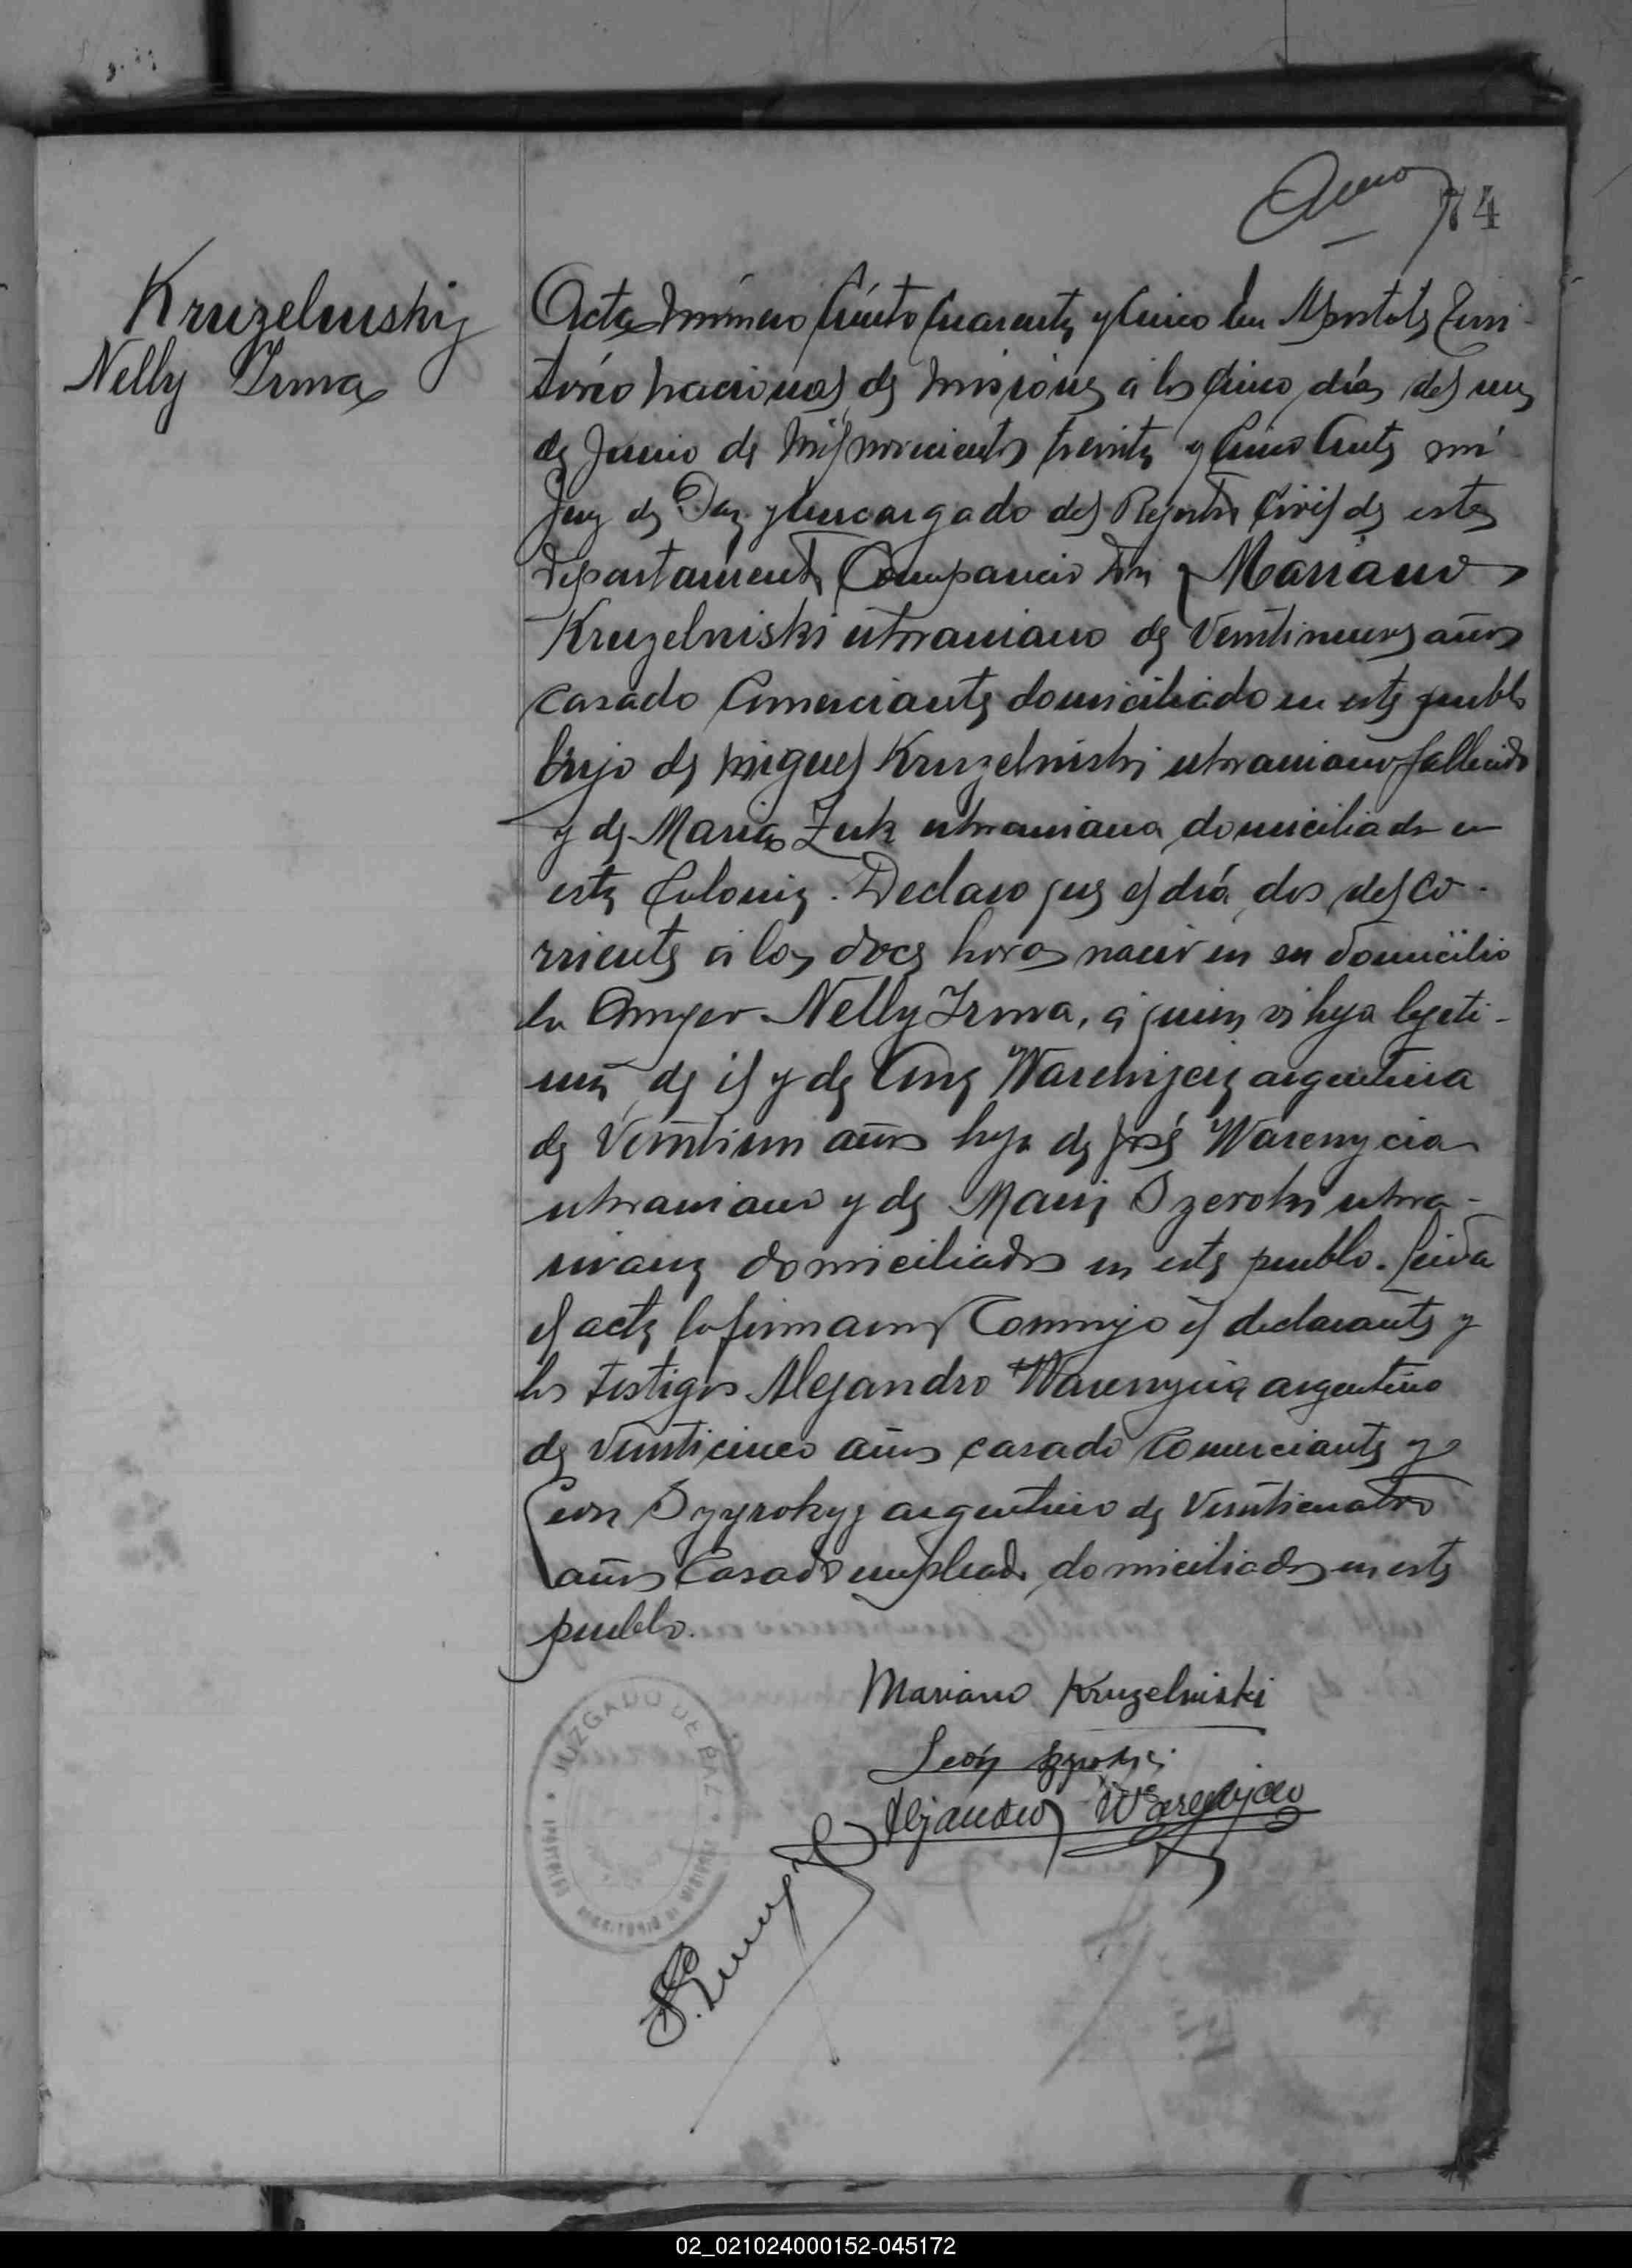 74
Kruzelniski
Nelly Irma
Acta Número Ciento Cuarenta y Cinco En Apostoles Terri-
torio Nacional de Misiones a los Cinco días del mes
de Junio de Mil novecientos treinta y Cinco Ante mí
Juez de Paz y Encargado del Registro Civil de este
departamento Compareció Don Mariano
Kruzelniski ukraniano de Veintinueve años
casado Comerciante domiciliado en este pueblo
hijo de Miguel Kruzelniski ukraniano fallecido
y de Maria Zuk ukraniana domiciliada en
esta Colonia. Declaro que el día dos del co-
rriente a las doce horas nació en su domicilio
la mujer Nelly Irma, a quien es hija legiti-
ma de él y de Ana Warenycia argentina
de Veintiun años hija de José Warenycia
ukraniano y de Maria Szeroki ukra-
niana domiciliados en este pueblo. Leida
el acta la firmaron Conmigo el declarante y
los testigos Alejandro Warenycia argentino
de Veinticinco años casado Comerciante y
Leon Szyrokyj argentino de Veinticuatro
años Casado empleado domiciliados en este
pueblo.
Mariano Kruzelniski
León
Alejandro Warenycia
JUZGADO DE PAZ
APOSTOLES
TERRITORIO DE MISIONES
02_021024000152-045172